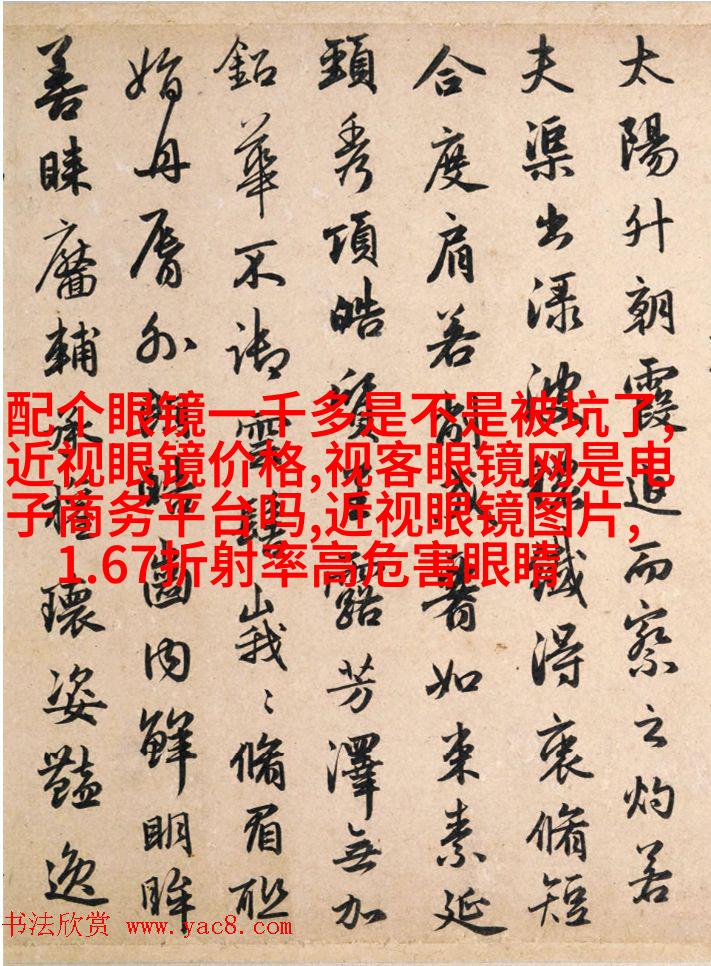 太陽升朝霞迫而察之灼若
夫渠出渌波襛纖得衷脩短
合度肩若削成如束素延
頸秀項皓質呈露芳澤無加
鉛華不御雲髻峩〻脩眉聯
娟丹脣外朗皓齒内鮮明眸
善睞靨輔承權瓌姿豔逸
配个眼镜一千多是不是被坑了,
近视眼镜价格,视客眼镜网是电
子商务平台吗,近视眼镜图片,
1.67折射率高危害眼睛
书法欣赏 www.yac8.com